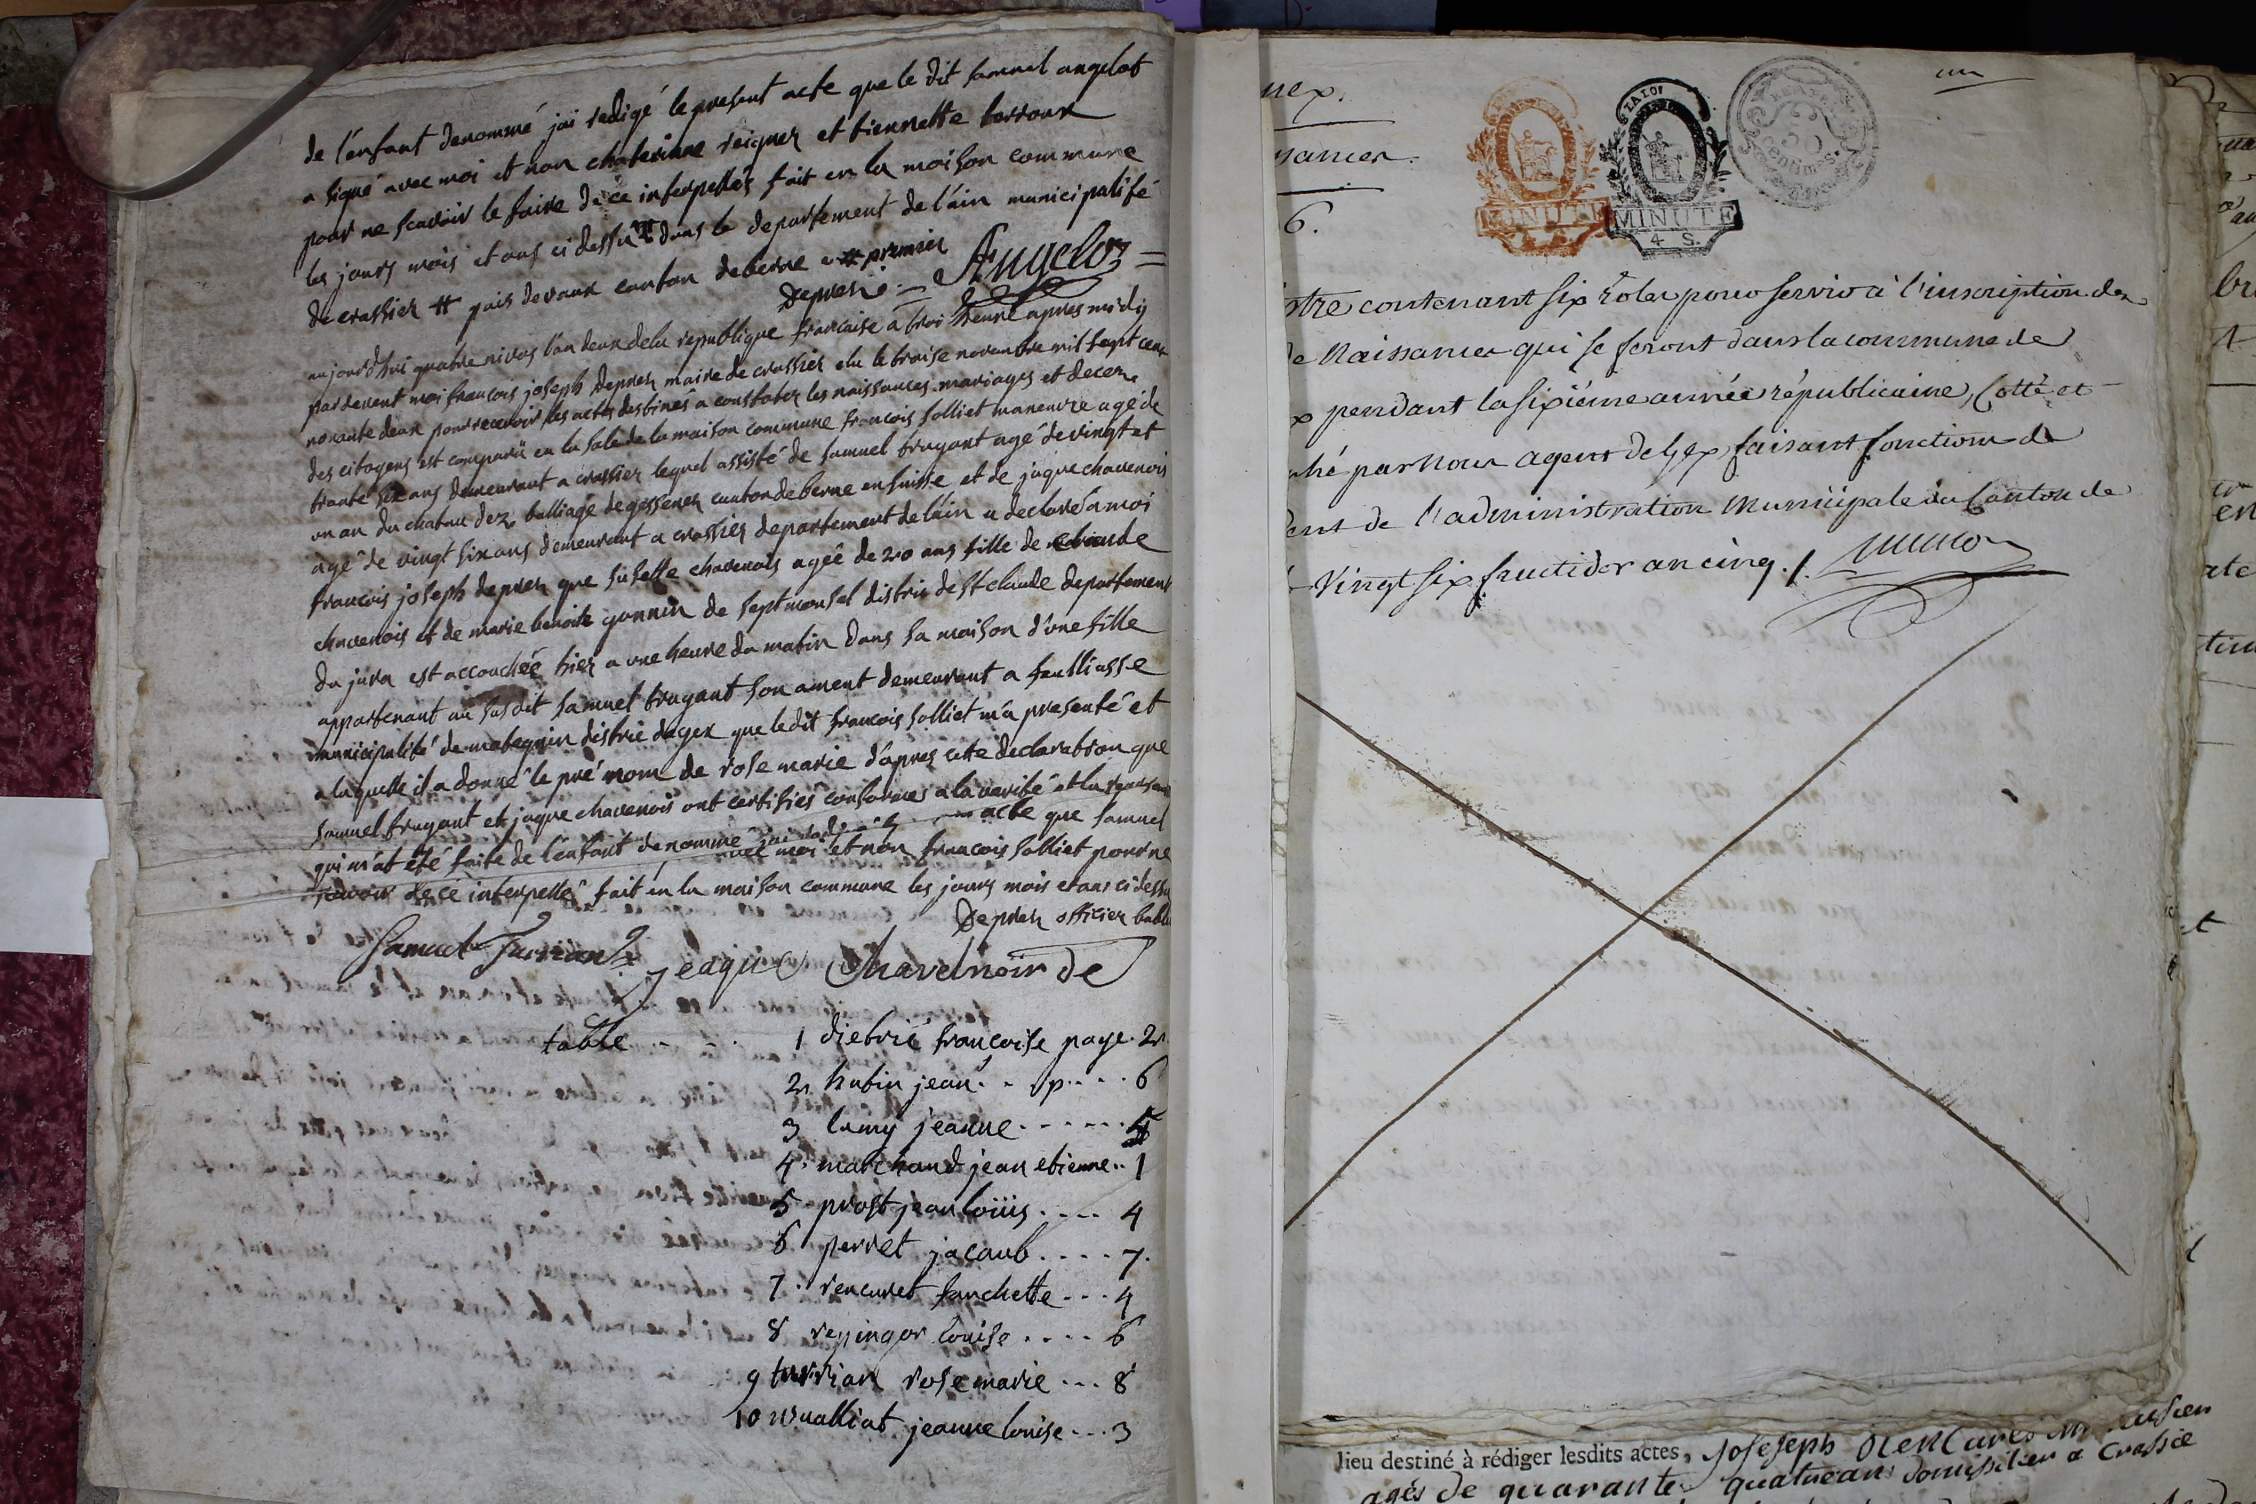 de l'enfant denommé j'ai redigé le present acte que le dit samuel angelot
a signé avec moi et non chaterinne reigner et tiennette terroux
pour ne scavoir le faire de ce interpellés fait en la maison commune
les jours mois et ans ci dessu dans le departement de l'ain municipalité
de crassier # pais devaux canton de berne # premier
Deprez Angeloz
aujourd'hui quatre nivos l'an deux de la republique francaise a troi heure apres midy
pardevent moi francois joseph deprez maire de crassier elu le traise novembre mil sept cent
nonante deux pour recevoir les actes destinés a constater les naissances mariages et deces
des citoyens est comparü en la sale de la maison commune francois solliet maneuvre agé de
trante six ans demeurant a crassier lequel assisté de samuel truyant agé de vingt et
un an du chatau dez balliage de gessenez canton de berne en suisse et de jaque chavenois
agé de vingt six ans demeurant a crassier departement de l'ain a declaré a moi
francois joseph deprez que susette chavenois ageé de 20 ans fille de claude
chavenois et de marie benoite gonnin de septmonsel distric de st claude departement
du jura est accouchée hier a une heure da matin dans sa maison d'une fille
appartenant au susdit samuel truyant son ament demeurant a feulliasse
municipalité de mategnin distric de gex que ledit francois solliet m'a presenté et
a laquelle il a donné le pré nom de rose marie d'apres cette declaration que
samuel truyant et jaque chavenois ont certifiés conformes a la verité et la
qui m'at été faite de l'enfant denommé acte que samuel
avec moi et non francois solliet pour ne
scavoir de ce interpellé fait en la maison commune les jours mois et ans ci dessu
Deprez officier
Samuel
Jeaque Chavelnoir de
table
1 dietrié francoise page 2
2 hubin jean p 6
3 lamy jeanne 5
4 marchand jean etienne 1
5 prost jean loüis 4
6 perret jacaub 7
7 rencuret fanchette 4
8 reyingor louise 6
9 turrian rose marie 8
10 wualliat jeanne louise 3
un
nex.
ssances.
6.
MINUTE
MINUTE
4 S.
centimes
stre contenant six Roles pour servir à l'inscription des
de Naissances qui se feront dans la commune de
x pendant la sixième année républicaine, Cotté et
phé par Nous agent de Gex, faisant fonctions de
dent de l'administration Municipale du Canton de
Vingt six fructidor an cinq.
lieu destiné à rédiger lesdits actes, Joseseph
agés de quarante quatreans domissilier a Crassié